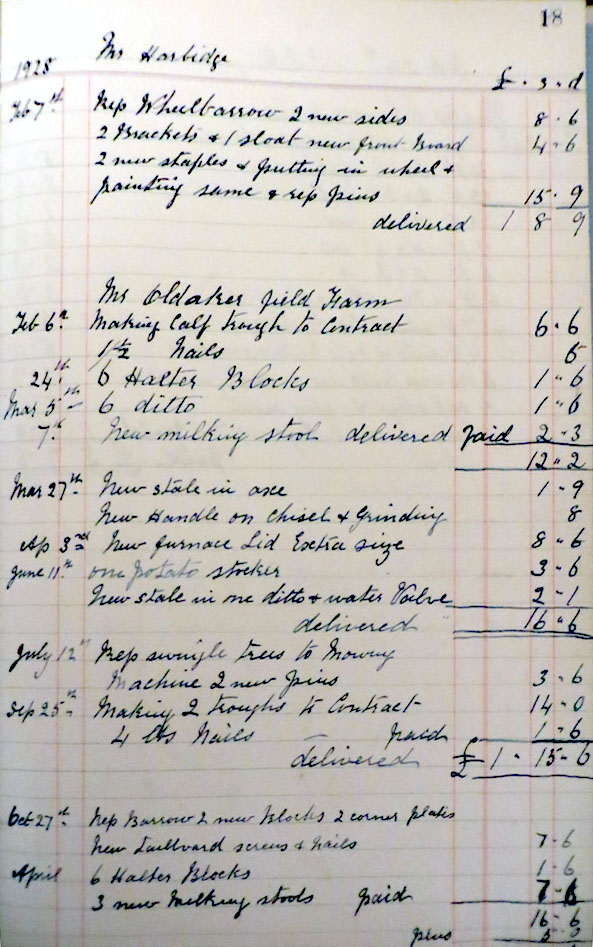 18
1928 Mr Harbidge
£ . s . d
Feb 7th Rep Wheelbarrow 2 new sides 8 . 6
2 Brackets & 1 sloat new front Board 4 . 6
2 new staples & putting in wheel &
painting same & rep pins 15 . 9
delivered 1 8 9
Mr Oldaker field Farm
Feb 6th Making Calf trough to Contract 6 . 6
1½ Nails 5
24th 6 Halter Blocks 1 " 6
Mar 5th 6 ditto 1 " 6
7th New milking stool delivered paid 2 - 3
12 " 2
Mar 27th New stale in axe 1 - 9
New Handle on Chisel & Grinding 8
Ap 3rd New furnace Lid Extra size 8 - 6
June 11th one potato stocker 3 - 6
New stale in one ditto & water Valve 2 - 1
delivered 16 " 6
July 12th Rep swingle trees to Mowing
Machine 2 new pins 3 . 6
Sep 25th Making 2 troughs to Contract 14 . 0
4 lbs Nails paid 1 - 6
delivered £ 1 - 15 - 6
Oct 27th Rep Barrow 2 new Blocks 2 corner plates
New screws & Nails 7 - 6
April 6 Halter Blocks 1 - 6
3 new Milking stools paid 7 - 6
16 - 6
plus